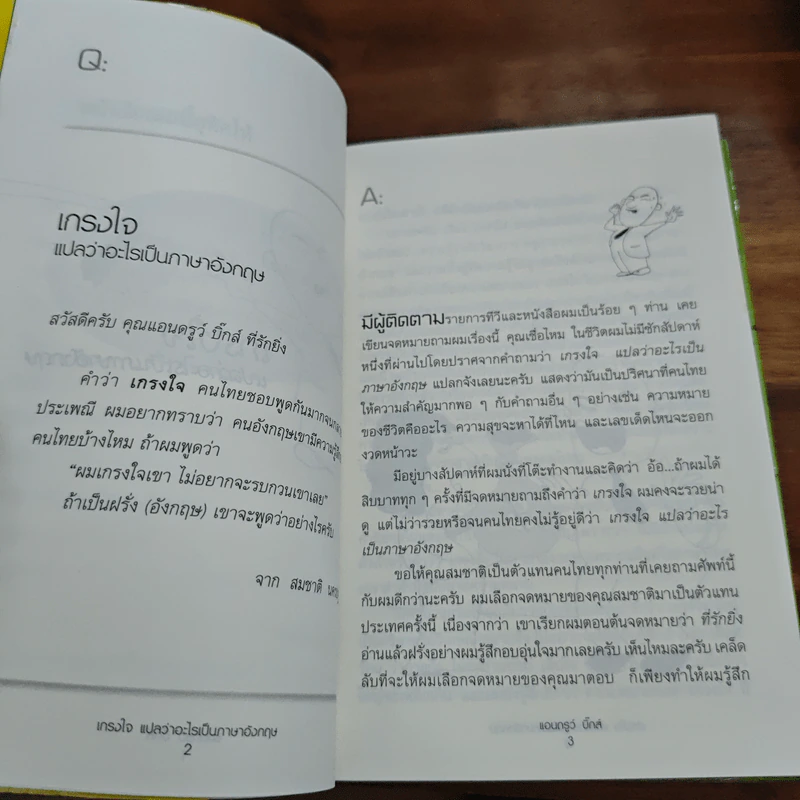 Q:
เกรงใจ
แปลว่าอะไรเป็นภาษาอังกฤษ
สวัสดีครับ คุณแอนดรูว์ บิ๊กส์ ที่รักยิ่ง
คำว่า เกรงใจ คนไทยชอบพูดกันมากจน
ประเพณี ผมอยากทราบว่า คนอังกฤษเขามีความรู้สึก
คนไทยบ้างไหม ถ้าผมพูดว่า
“ผมเกรงใจเขา ไม่อยากจะรบกวนเขาเลย”
ถ้าเป็นฝรั่ง (อังกฤษ) เขาจะพูดว่าอย่างไรครับ
จาก สมชาติ
เกรงใจ แปลว่าอะไรเป็นภาษาอังกฤษ
2
A:
มีผู้ติดตามรายการทีวีและหนังสือผมเป็นร้อย ๆ ท่าน เคย
เขียนจดหมายถามผมเรื่องนี้ คุณเชื่อไหม ในชีวิตผมไม่มีซักสัปดาห์
หนึ่งที่ผ่านไปโดยปราศจากคำถามว่า เกรงใจ แปลว่าอะไรเป็น
ภาษาอังกฤษ แปลกจังเลยนะครับ แสดงว่ามันเป็นปริศนาที่คนไทย
ให้ความสำคัญมากพอ ๆ กับคำถามอื่น ๆ อย่างเช่น ความหมาย
ของชีวิตคืออะไร ความสุขจะหาได้ที่ไหน และเลขเด็ดไหนจะออก
งวดหน้าวะ
มีอยู่บางสัปดาห์ที่ผมนั่งที่โต๊ะทำงานและคิดว่า อ้อ...ถ้าผมได้
สิบบาททุก ๆ ครั้งที่มีจดหมายถามถึงคำว่า เกรงใจ ผมคงจะรวยน่า
ดู แต่ไม่ว่ารวยหรือจนคนไทยคงไม่รู้อยู่ดีว่า เกรงใจ แปลว่าอะไร
เป็นภาษาอังกฤษ
ขอให้คุณสมชาติเป็นตัวแทนคนไทยทุกท่านที่เคยถามศัพท์นี้
กับผมดีกว่านะครับ ผมเลือกจดหมายของคุณสมชาติมาเป็นตัวแทน
ประเทศครั้งนี้ เนื่องจากว่า เขาเรียกผมตอนต้นจดหมายว่า ที่รักยิ่ง
อ่านแล้วฝรั่งอย่างผมรู้สึกอบอุ่นใจมากเลยครับ เห็นไหมละครับ เคล็ด
ลับที่จะให้ผมเลือกจดหมายของคุณมาตอบ ก็เพียงทำให้ผมรู้สึก
แอนดรูว์ บิ๊กส์
3